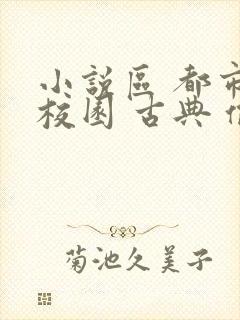 小説區 都市
校園 古典
菊池久美子